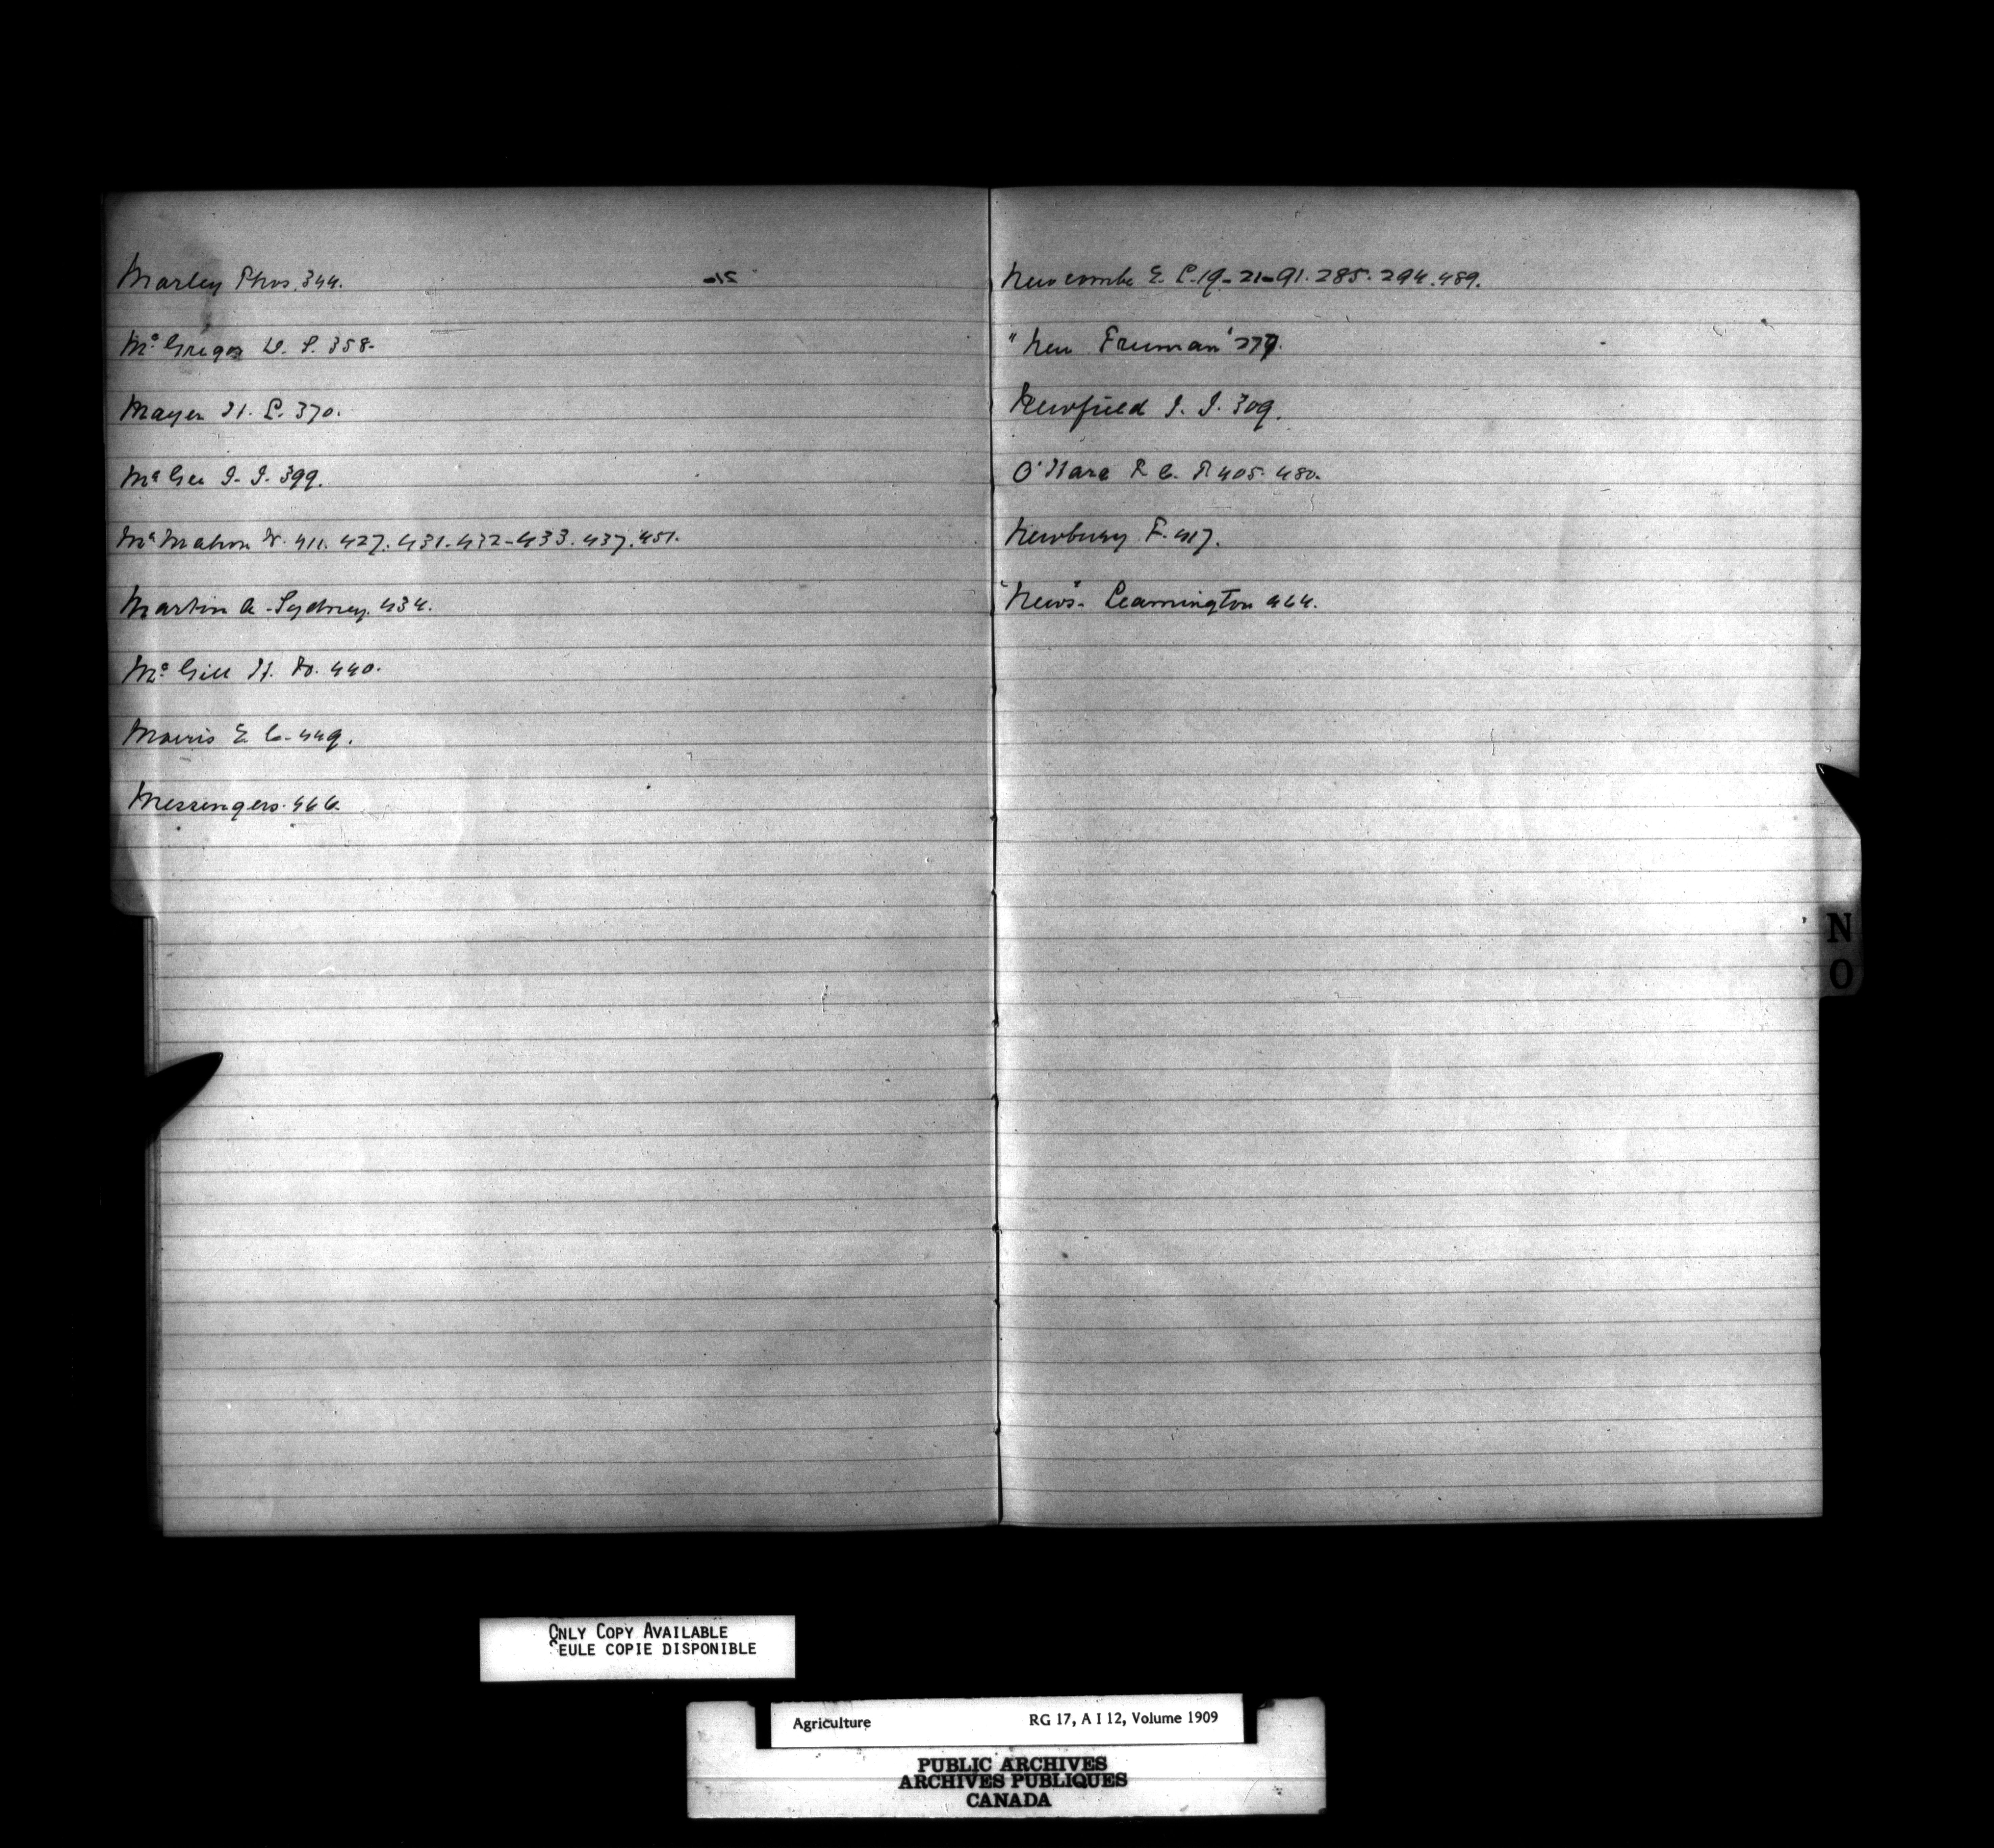 Marley Thos. 344.
McGregor D. S. 358-
Mayer H. L. 370.
McGee J. J. 399.
McMahon W. 411. 427. 431-432-433. 437. 451.
Martin A - Sydney. 434.
McGill H. W. 440.
Morris E. C. 449.
Messengers. 466.
Newcombe E. L. 19-21-91. 285. 294. 489.
"New Freeman" 279.
Newfield J. J. 309.
O'Hara F. C. T. 405. 480.
Newbury F. 417.
"News" - Leamington 464.
N
O
ONLY COPY AVAILABLE
EULE COPIE DISPONIBLE
Agriculture RG 17, A I 12, Volume 1909
PUBLIC ARCHIVES
ARCHIVES PUBLIQUES
CANADA